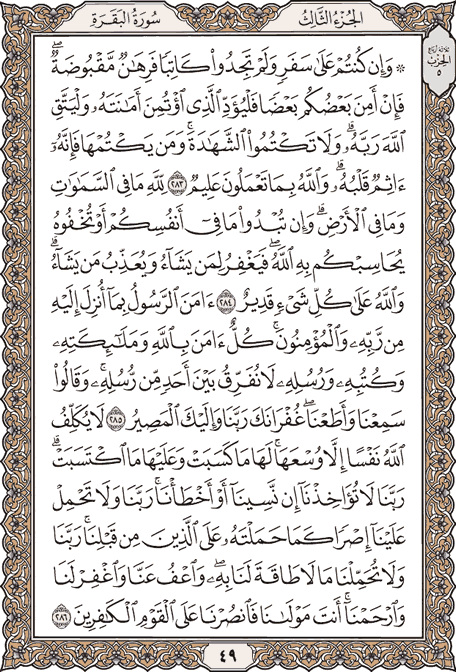 سُورَةُ البَقَرَةِ
الجُزْءُ الثَّالِثُ
ثلاثة أرباع
الحزب
٥
۞ وَإِن كُنتُمْ عَلَىٰ سَفَرٍ وَلَمْ تَجِدُوا۟ كَاتِبًا فَرِهَٰنٌ مَّقْبُوضَةٌ ۖ
فَإِنْ أَمِنَ بَعْضُكُم بَعْضًا فَلْيُؤَدِّ ٱلَّذِى ٱؤْتُمِنَ أَمَٰنَتَهُۥ وَلْيَتَّقِ
ٱللَّهَ رَبَّهُۥ ۗ وَلَا تَكْتُمُوا۟ ٱلشَّهَٰدَةَ ۚ وَمَن يَكْتُمْهَا فَإِنَّهُۥٓ
ءَاثِمٌ قَلْبُهُۥ ۗ وَٱللَّهُ بِمَا تَعْمَلُونَ عَلِيمٌ ٢٨٣ لِّلَّهِ مَا فِى ٱلسَّمَٰوَٰتِ
وَمَا فِى ٱلْأَرْضِ ۗ وَإِن تُبْدُوا۟ مَا فِىٓ أَنفُسِكُمْ أَوْ تُخْفُوهُ
يُحَاسِبْكُم بِهِ ٱللَّهُ ۖ فَيَغْفِرُ لِمَن يَشَآءُ وَيُعَذِّبُ مَن يَشَآءُ ۗ
وَٱللَّهُ عَلَىٰ كُلِّ شَىْءٍ قَدِيرٌ ٢٨٤ ءَامَنَ ٱلرَّسُولُ بِمَآ أُنزِلَ إِلَيْهِ
مِن رَّبِّهِۦ وَٱلْمُؤْمِنُونَ ۚ كُلٌّ ءَامَنَ بِٱللَّهِ وَمَلَٰٓئِكَتِهِۦ
وَكُتُبِهِۦ وَرُسُلِهِۦ لَا نُفَرِّقُ بَيْنَ أَحَدٍ مِّن رُّسُلِهِۦ ۚ وَقَالُوا۟
سَمِعْنَا وَأَطَعْنَا ۖ غُفْرَانَكَ رَبَّنَا وَإِلَيْكَ ٱلْمَصِيرُ ٢٨٥ لَا يُكَلِّفُ
ٱللَّهُ نَفْسًا إِلَّا وُسْعَهَا ۚ لَهَا مَا كَسَبَتْ وَعَلَيْهَا مَا ٱكْتَسَبَتْ ۗ
رَبَّنَا لَا تُؤَاخِذْنَآ إِن نَّسِينَآ أَوْ أَخْطَأْنَا ۚ رَبَّنَا وَلَا تَحْمِلْ
عَلَيْنَآ إِصْرًا كَمَا حَمَلْتَهُۥ عَلَى ٱلَّذِينَ مِن قَبْلِنَا ۚ رَبَّنَا
وَلَا تُحَمِّلْنَا مَا لَا طَاقَةَ لَنَا بِهِۦ ۖ وَٱعْفُ عَنَّا وَٱغْفِرْ لَنَا
وَٱرْحَمْنَآ ۚ أَنتَ مَوْلَىٰنَا فَٱنصُرْنَا عَلَى ٱلْقَوْمِ ٱلْكَٰفِرِينَ ٢٨٦
٤٩